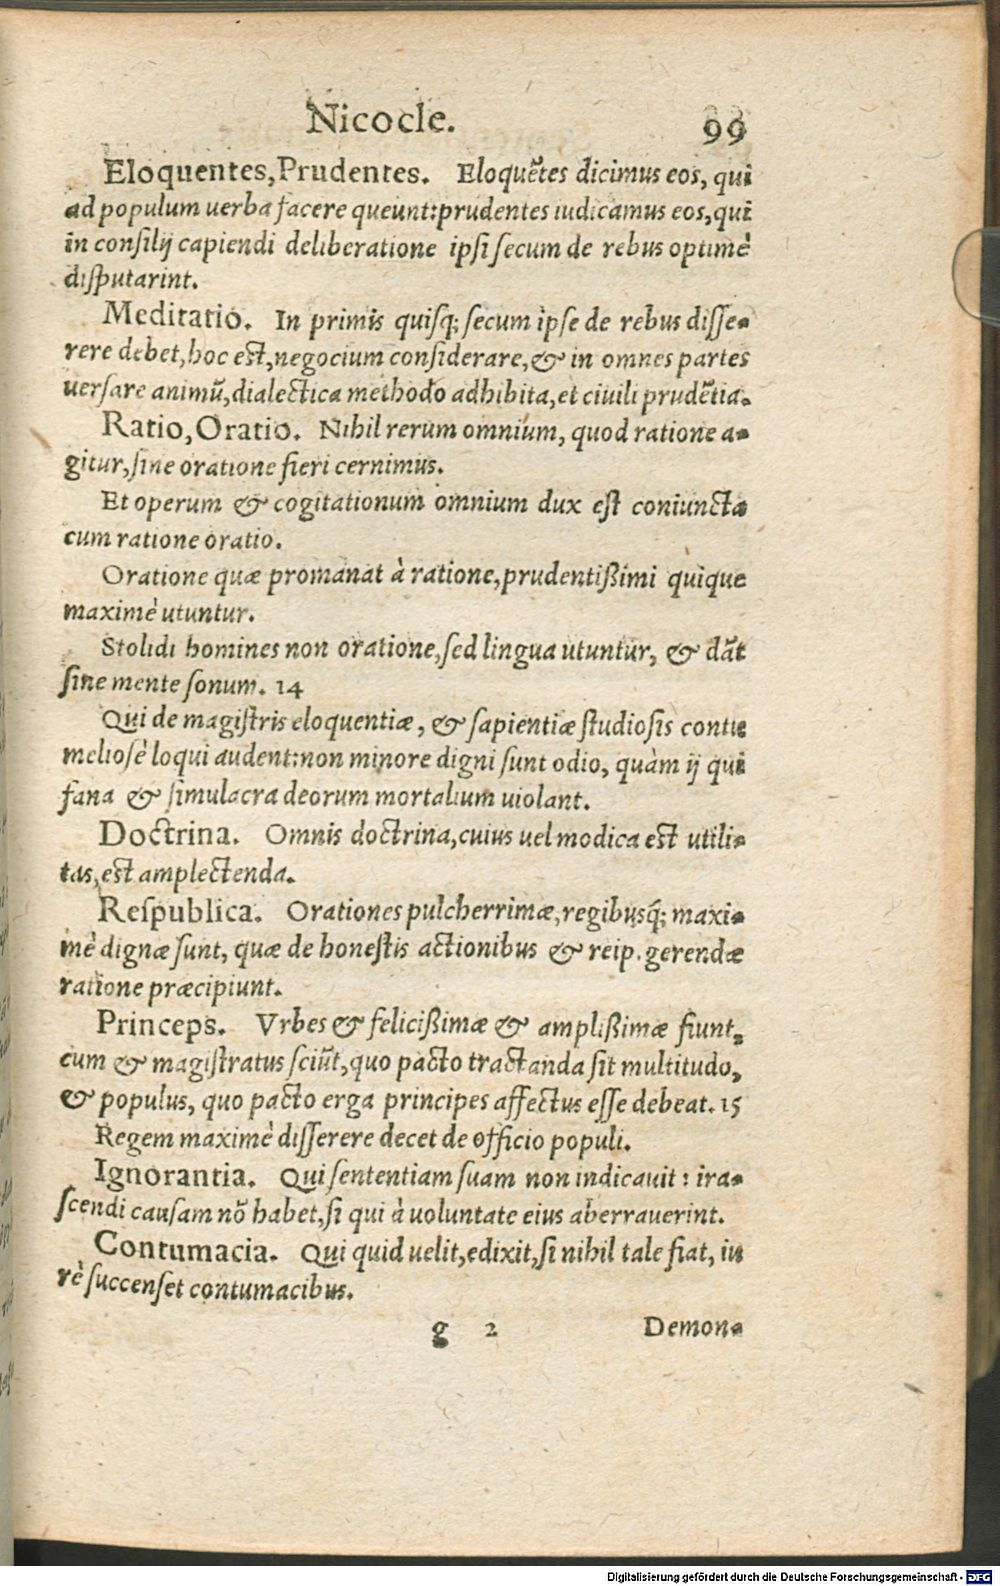 Nicocle. 99
Eloquentes, Prudentes. Eloquẽtes dicimus eos, qui
ad populum uerba facere queunt: prudentes iudicamus eos, qui
in consilij capiendi deliberatione ipsi secum de rebus optimè
disputarint.
Meditatio. In primis quisq; secum ipse de rebus disse-
rere debet, hoc est, negocium considerare, & in omnes partes
uersare animũ, dialectica methodo adhibita, et ciuili prudẽtia.
Ratio, Oratio. Nihil rerum omnium, quod ratione a-
gitur, sine oratione fieri cernimus.
Et operum & cogitationum omnium dux est coniuncta
cum ratione oratio.
Oratione quæ promanat à ratione, prudentißimi quique
maximè utuntur.
Stolidi homines non oratione, sed lingua utuntur, & dãt
sine mente sonum. 14
Qui de magistris eloquentiæ, & sapientiæ studiosis contu
meliosè loqui audent: non minore digni sunt odio, quàm ij qui
fana & simulacra deorum mortalium uiolant.
Doctrina. Omnis doctrina, cuius uel modica est utili-
tas, est amplectenda.
Respublica. Orationes pulcherrimæ, regibusq́; maxi-
mè dignæ sunt, quæ de honestis actionibus & reip. gerendæ
ratione præcipiunt.
Princeps. Vrbes & felicißimæ & amplißimæ fiunt,
cum & magistratus sciũt, quo pacto tractanda sit multitudo,
& populus, quo pacto erga principes affectus esse debeat. 15
Regem maximè disserere decet de officio populi.
Ignorantia. Qui sententiam suam non indicauit: ira-
scendi causam nõ habet, si qui à uoluntate eius aberrauerint.
Contumacia. Qui quid uelit, edixit, si nihil tale fiat, iu
rè succenset contumacibus.
g 2 Demon-
Digitalisierung gefördert durch die Deutsche Forschungsgemeinschaft - DFG